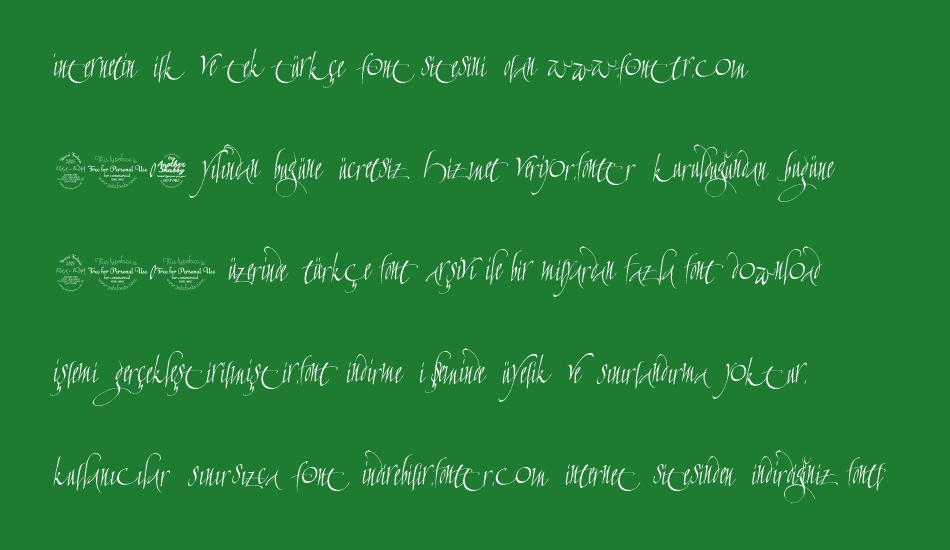 internetin ilk ve tek türkçe font sitesini olan www.fonttr.com
yılından bugüne ücretsiz hizmet veriyor.fonttr kurulduğundan bugüne
üzerinde türkçe font arşivi ile bir milyardan fazla font download
işlemi gerçekleştirilmiştir.font indirme işleminde üyelik ve sınırlandırma yoktur.
kullanıcılar sınırsızca font indirebilir.fonttr.com internet sitesinden indirdiğiniz